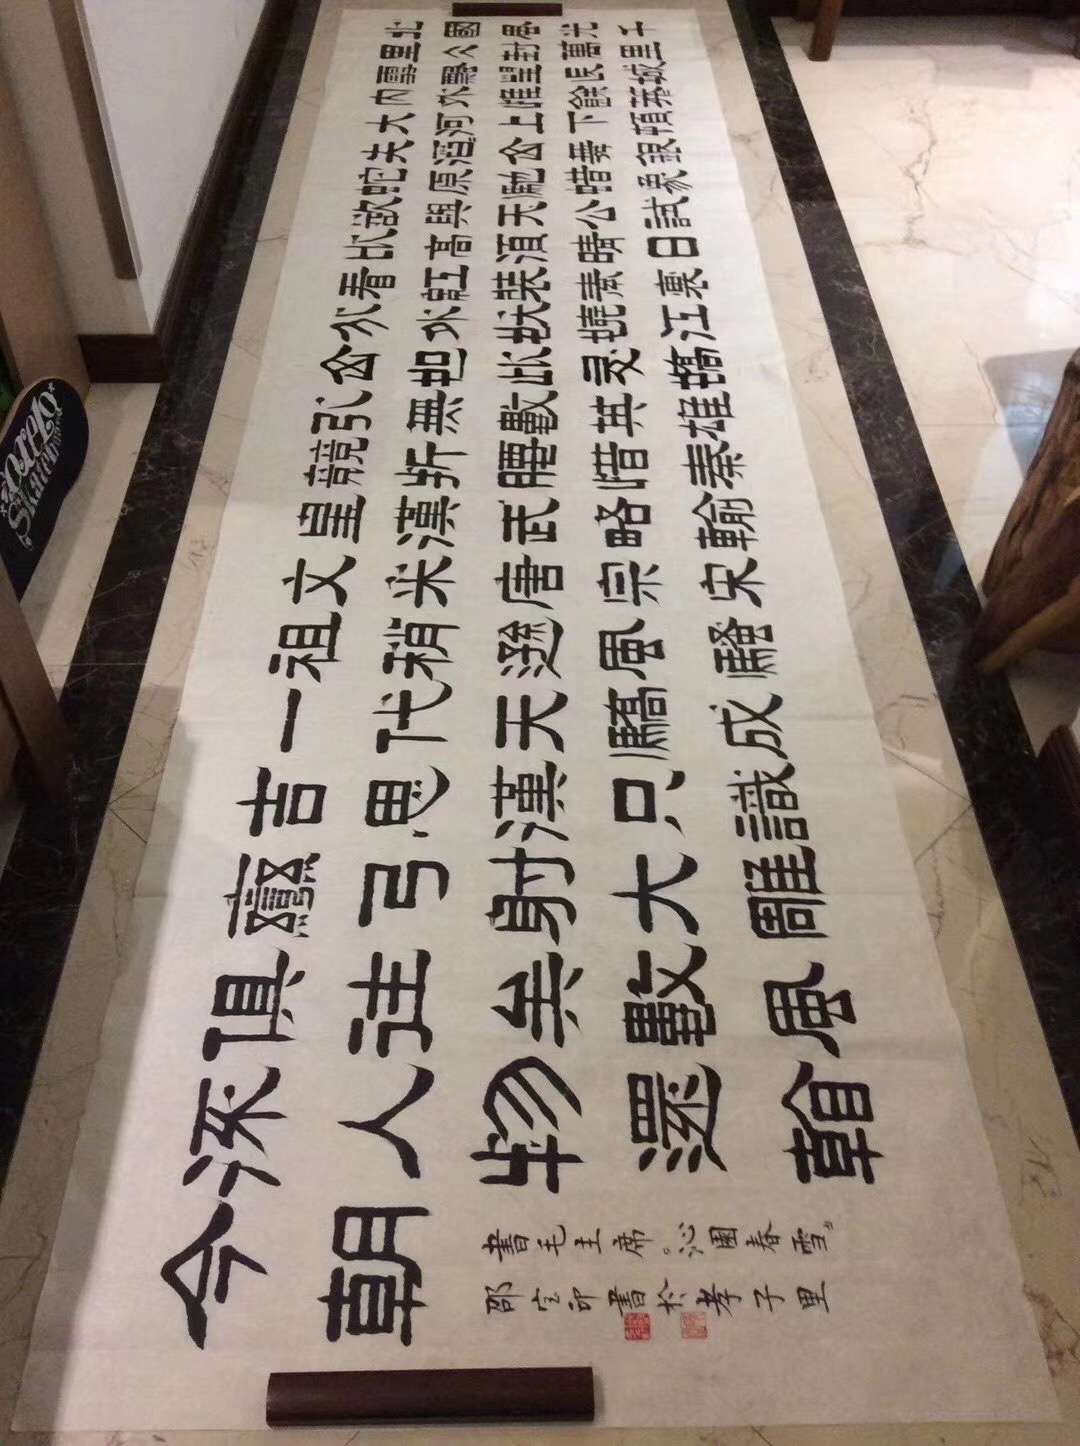 北國風光千
里冰封萬里
雪飄望長城
內外惟餘莽
大河上下頓
失滔山舞銀
蛇原馳蠟象
欲與天公試
比高須晴日
看紅裝素裹
分外妖嬈江
山如此多嬌
引無數英雄
競折腰惜秦
皇漢武略輸
文采唐宗宋
祖稍遜風騷
一代天驕成
吉思漢只識
彎弓射大雕
俱往矣數風
流人物還看
今朝
書毛主席“沁園春雪”
邵宝印書於孝子里